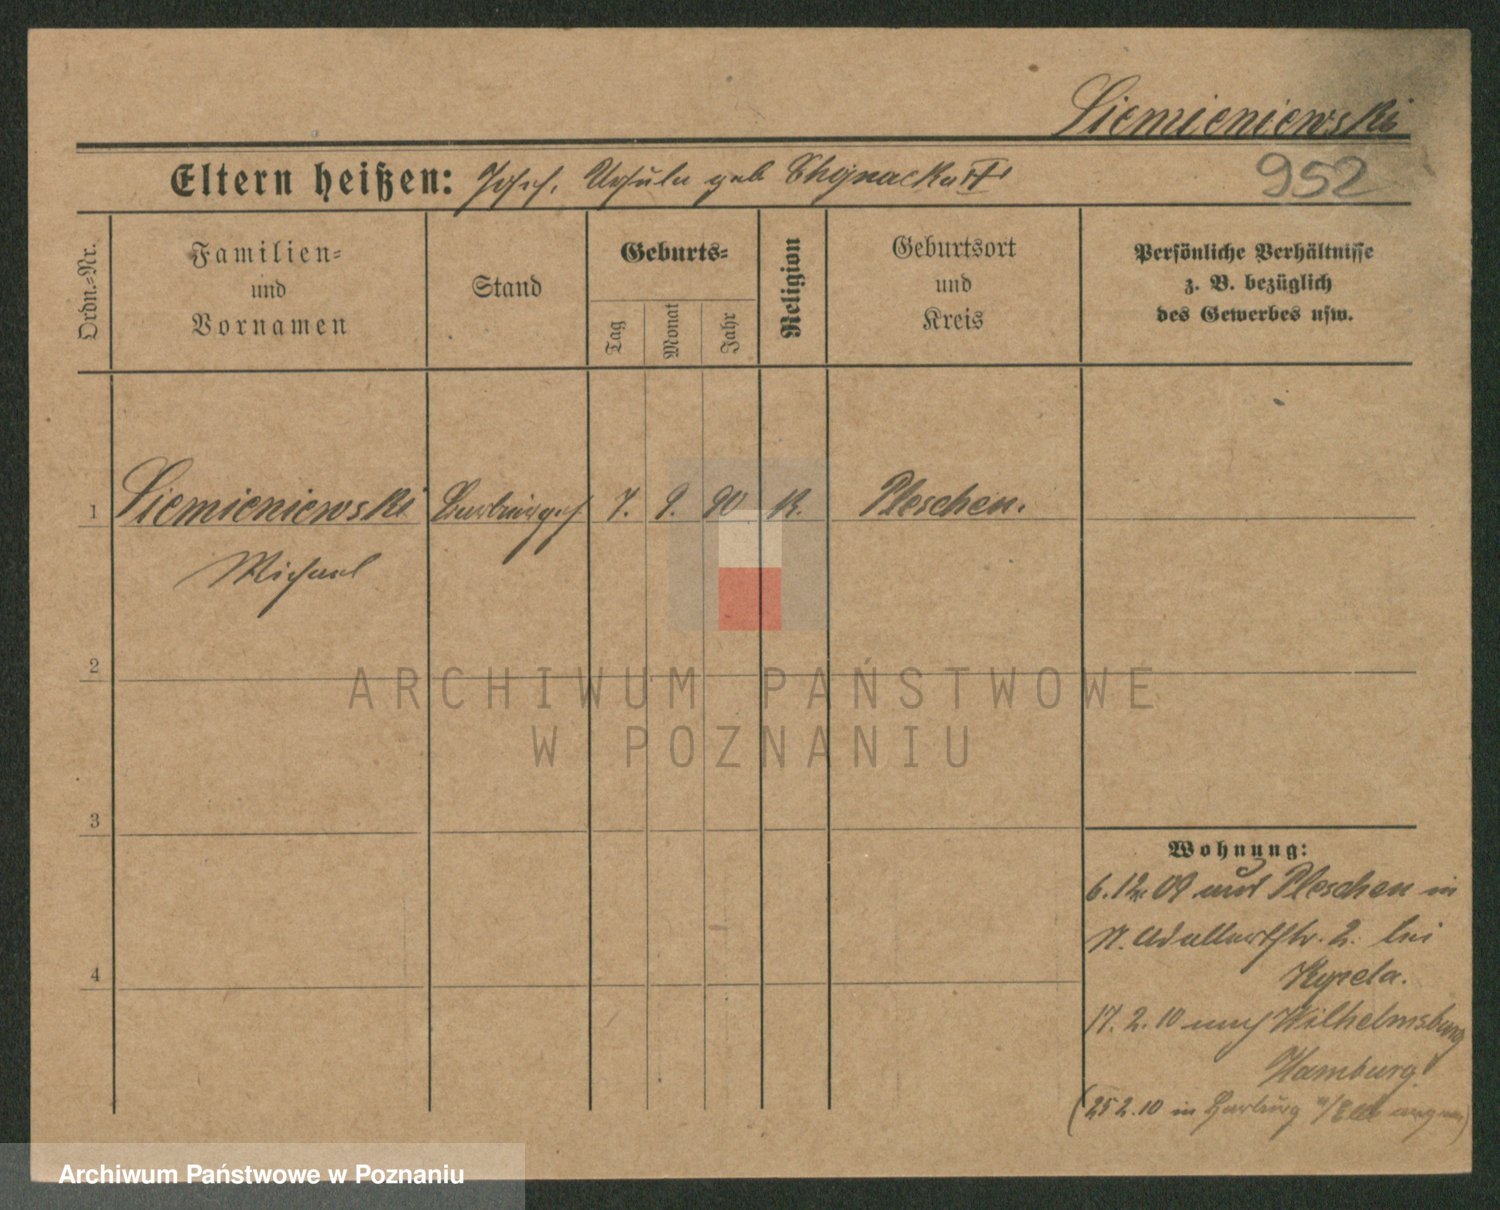 Siemieniewski
952
Eltern heißen: Josef, Ursula geb
Ordn.=Nr.
Familien=
und
Vornamen
Stand
Geburts=
Tag
Monat
Jahr
Religion
Geburtsort
und
Kreis
Persönliche Verhältnisse
z. B. bezüglich
des Gewerbes usw.
1 Siemieniewski 7. 9. 90 K. Pleschen.
Michael
2
ARCHIWUM PAŃSTWOWE
W POZNANIU
3
Wohnung:
6.12.09 aus Pleschen in
St. Adalbertstr. 2. bei
4
17.2.10 nach Wilhelmsburg
Hamburg
(25 2.10 in Harburg a/Elbe
Archiwum Państwowe w Poznaniu